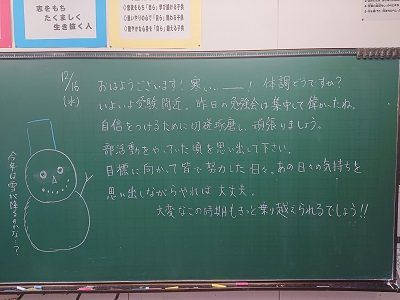 志をもち
たくましく
生き抜く人
12/16
(水)
おはようございます!寒いーーー! 体調どうですか?
いよいよ受験間近。昨日の勉強会は集中して偉かったね。
自信をつけるために切磋琢磨し、頑張りましょう。
部活動をやっていた頃を思い出して下さい。
目標に向かって皆で努力した日々。あの日々の気持ちを
思い出しながらやれば大丈夫。
大変なこの時期もきっと乗り越えられるでしょう!!
今年は雪が降るのかな〜?